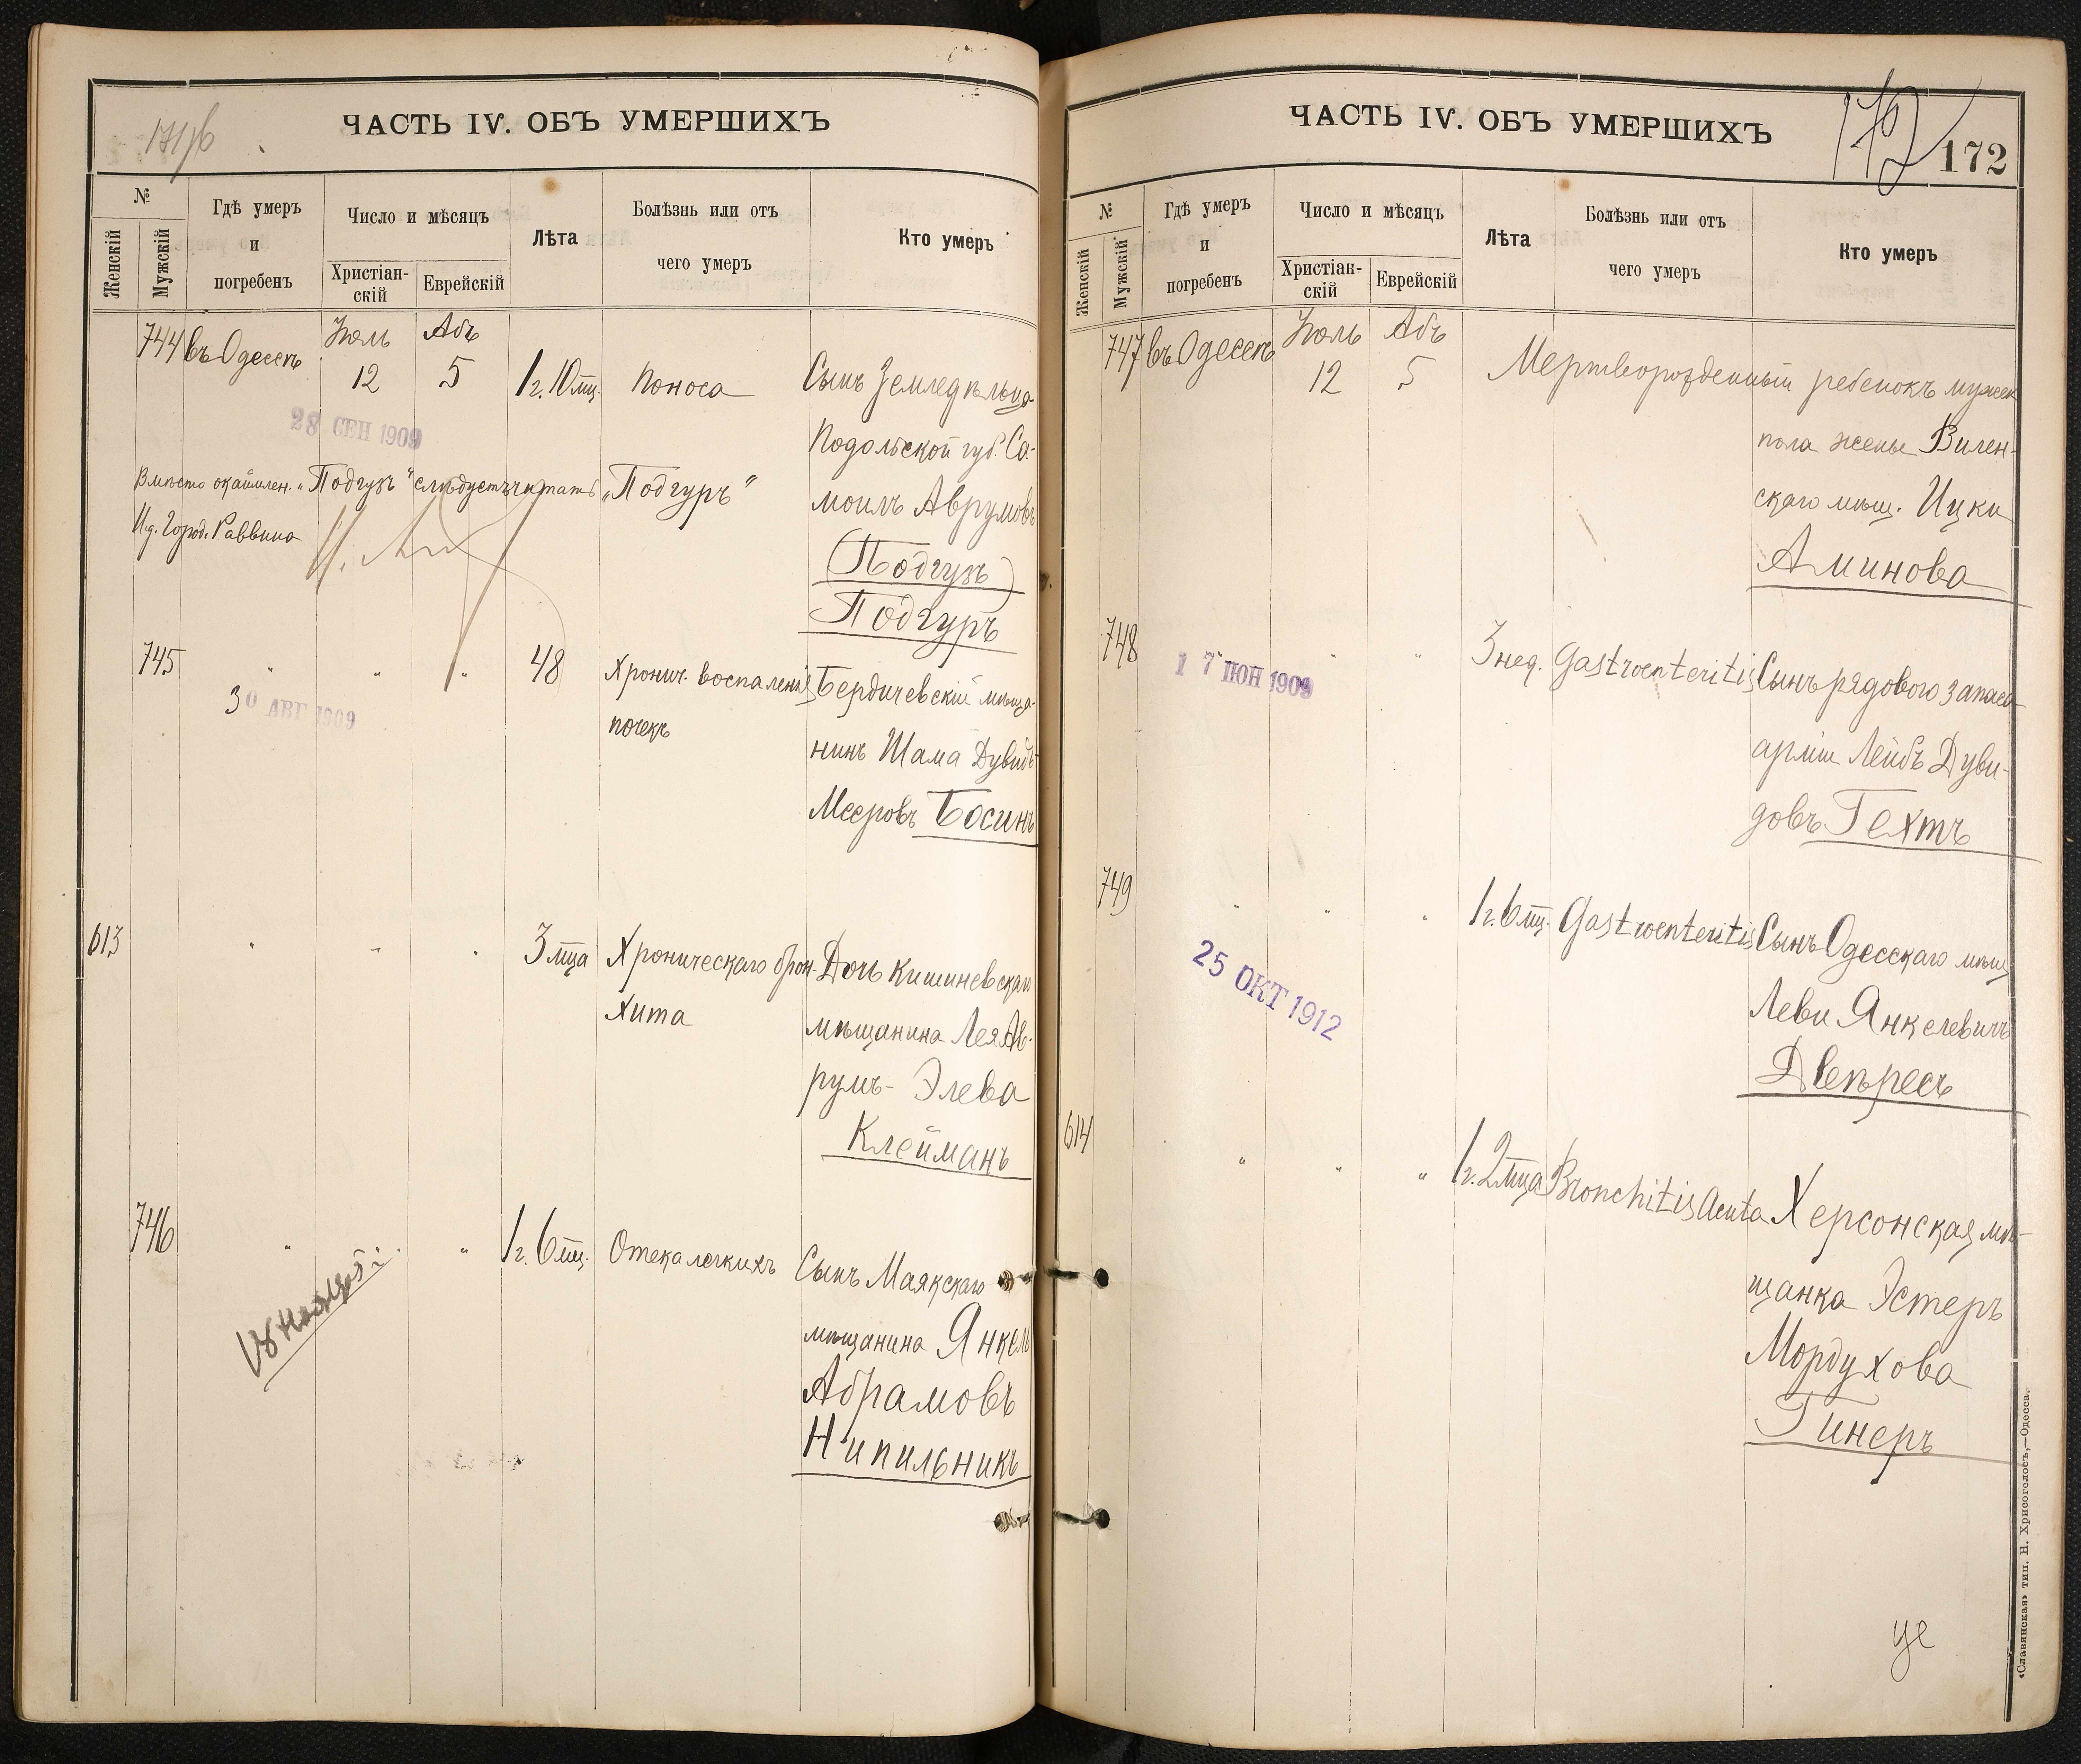 171об
ЧАСТЬ IV. ОБЪ УМЕРШИХЪ
№
Женскій
Мужскій
Гдѣ умеръ
и
погребенъ
Число и мѣсяцъ
Христіан-
скій
Еврейскій
Лѣта
Болѣзнь или отъ
чего умеръ
Кто умеръ
744 въ Одессѣ Іюль 12 Абъ 5 1 г. 10 мц. Поноса Сынъ Земледѣльца
Подольской губ. Са-
моилъ Аврумовъ
(Подгузъ)
Подгуръ
28 СЕН 1909
Вмѣсто окаймлен. „Подгузъ" слѣдуетъ читать „Подгуръ"
И.д. Город. Раввина
745 " " " 48 Хронич. воспаленія Бердичевскій мѣща-
почекъ нинъ Шама Дувидъ-
Мееровъ Босинъ
30 АВГ 1909
613 " " " 3 мца Хроническаго брон- Дочь Кишиневскаго
хита мѣщанина Лея Ав-
румъ- Элева
Клейманъ
746 " " 1 г. 6 мц. Отека легкихъ Сынъ Маякскаго
мѣщанина Янкель
Абрамовъ
Нипильникъ
ЧАСТЬ IV. ОБЪ УМЕРШИХЪ
172
172
№
Женскій
Мужскій
Гдѣ умеръ
и
погребенъ
Число и мѣсяцъ
Христіан-
скій
Еврейскій
Лѣта
Болѣзнь или отъ
чего умеръ
Кто умеръ
747 въ Одессѣ Іюль 12 Абъ 5 Мертворожденный ребенокъ мужск
пола жены Вилен-
скаго мѣщ. Ицки
Аминова
748 " " 3 нед. Gastroenteritis Сынъ рядового запаса
арміи Лейбъ Дуви-
довъ Гехтъ
17 ІЮН 1909
749 " " " 1 г. 6 мц. Gastroenteritis Сынъ Одесскаго мѣщ
Леви Янкелевичъ
Двепресъ
25 ОКТ 1912
614 " " " 1 г. 2 мца Bronchitis Acuta Херсонская мѣ-
щанка Эстеръ
Мордухова
Гинеръ
«Славянская» тип. Н. Хрисогелосъ,—Одесса.